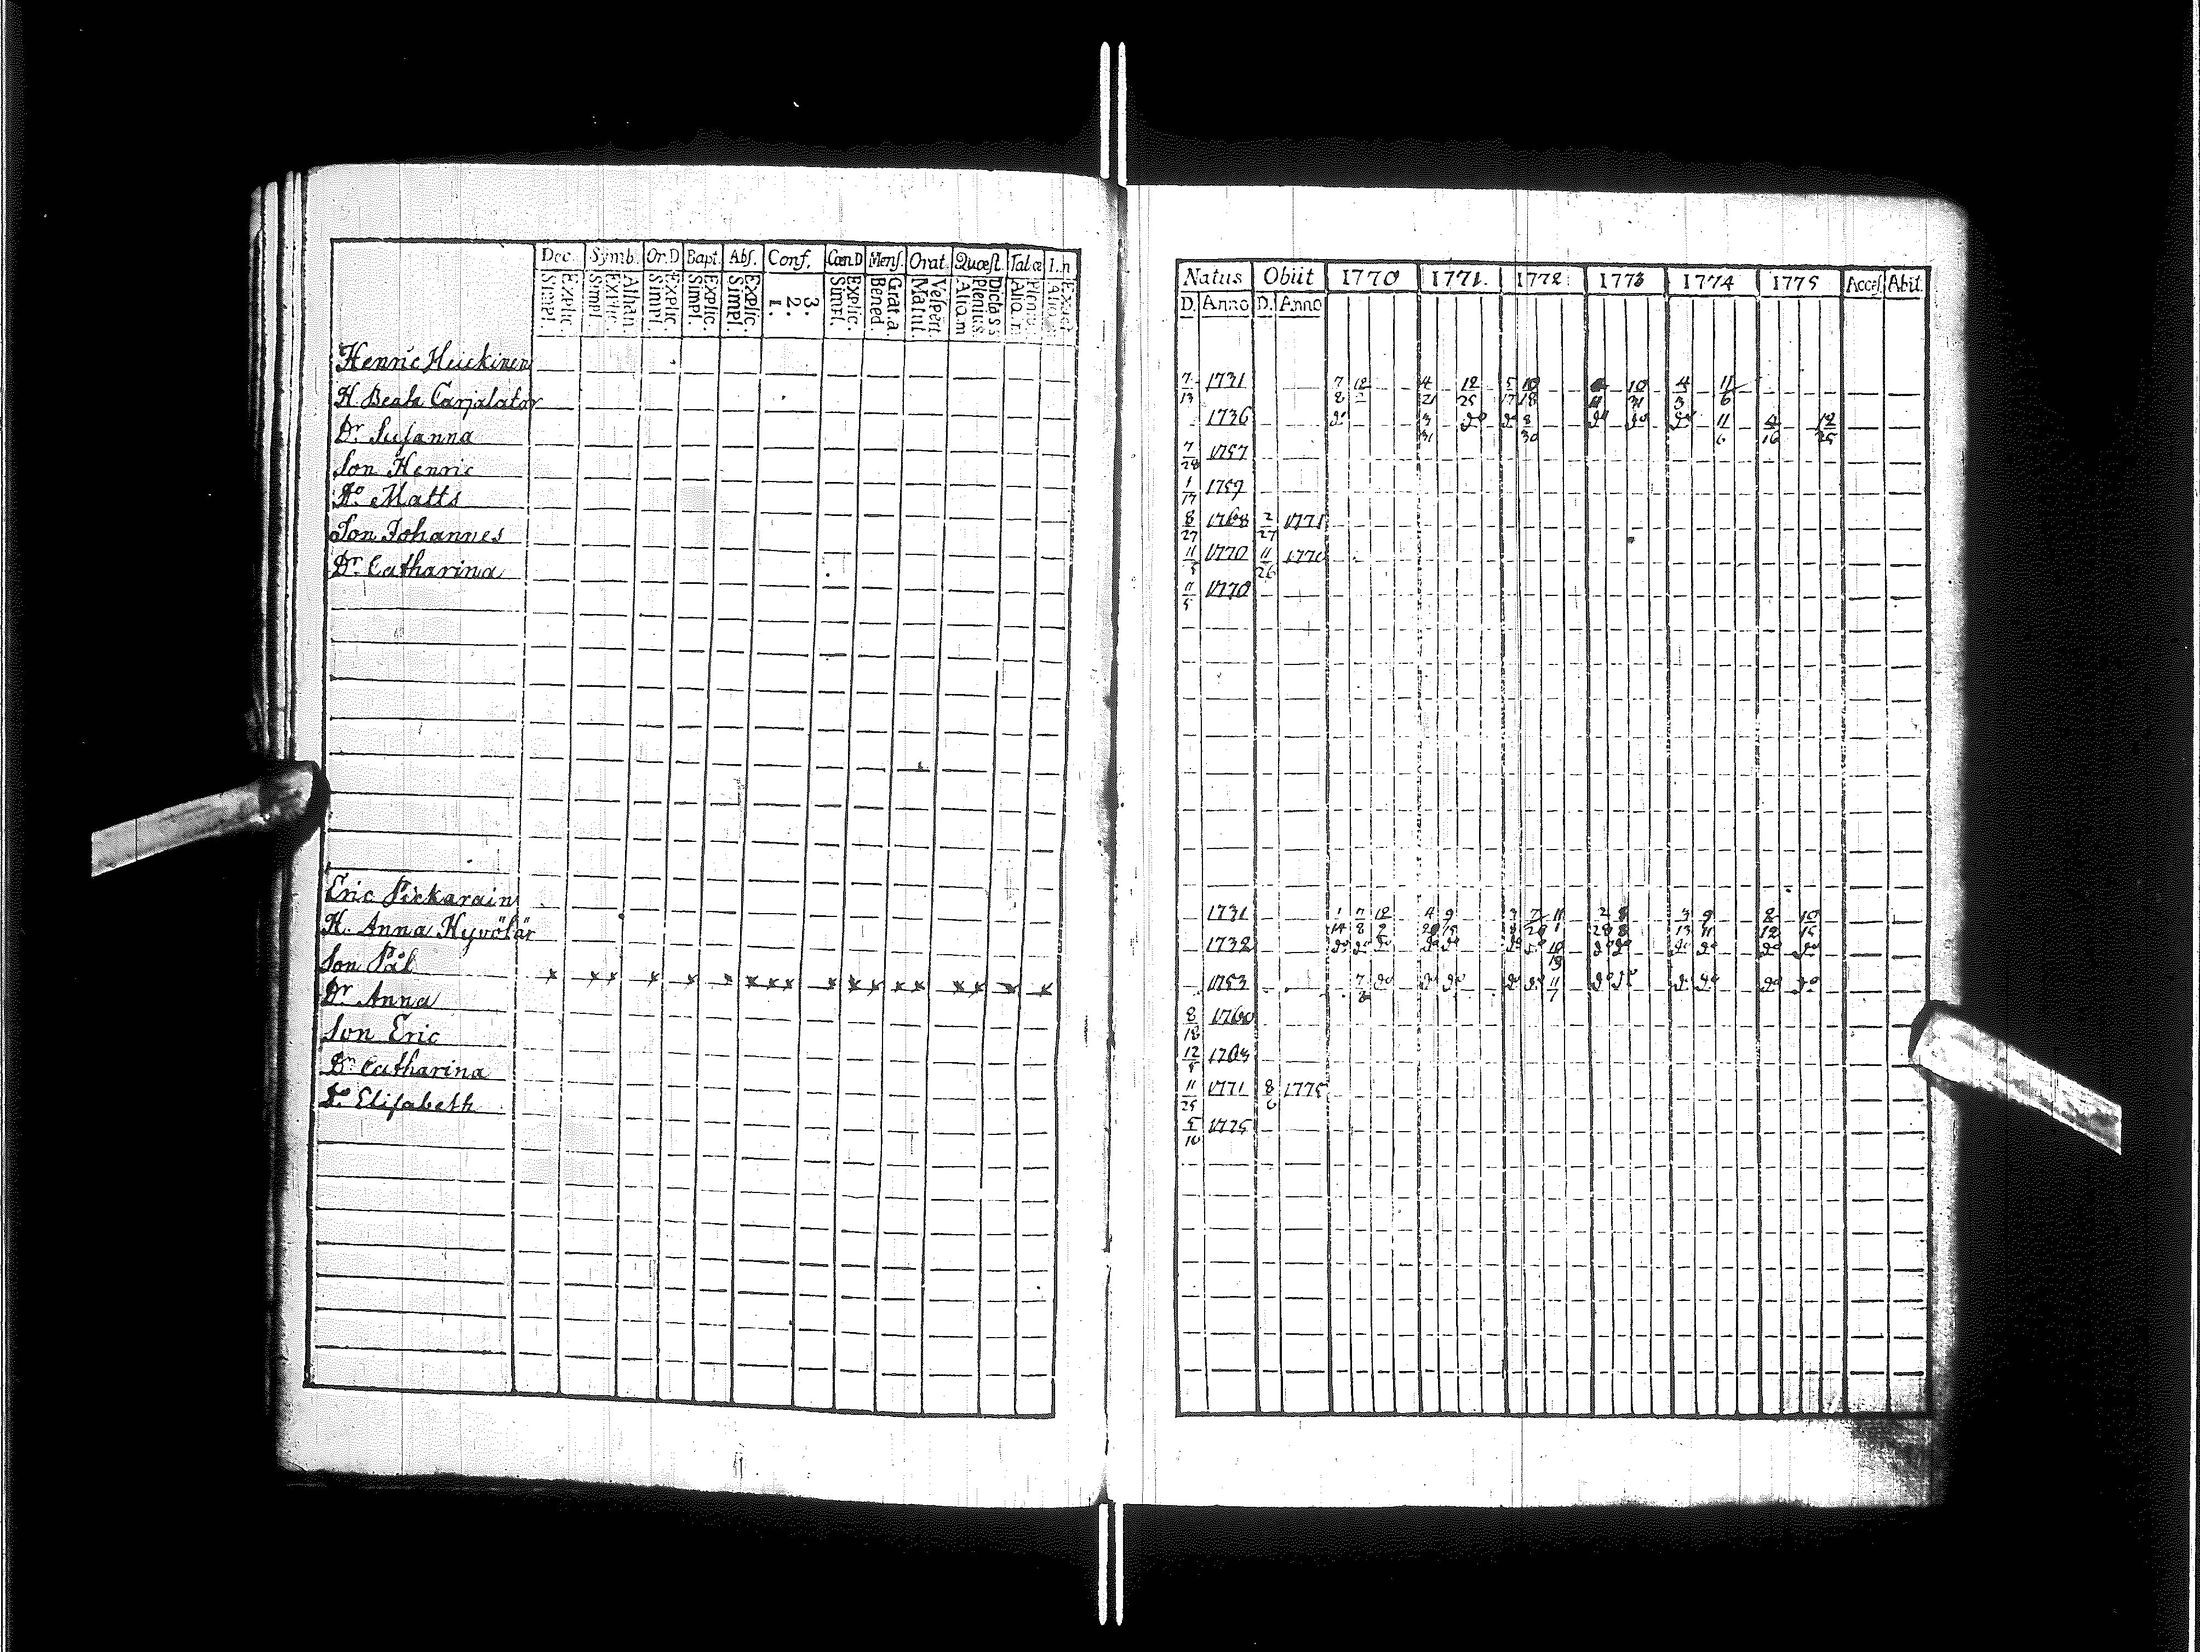 Dec. Symb. Or.D Bapt. Abs. Conf. Cœn D Mens. Orat. Quæst. Tabæ I.n
Explic. Simpl. Athan. Explic. Simpl. Explic. Simpl. Explic. Simpl. Explic. Simpl. 3. 2. 1. Explic. Simpl. Grat. a Bened. Vespert. Matut. Dicta S s Plenius Aliq. m
Henric Heickinen
H. Beata Carjalatar
Dr. Susanna
Son Henric
Do. Matts
Son Johannes
Dr. Catharina
Eric Pickarain
H. Anna Hyvölär
Son Pål
Dr Anna
Son Eric
Dr Catharina
Do. Elisabeth
Natus Obiit 1770 1771. 1772 1773 1774 1775 Access. Abit.
D. Anno D. Anno
7/13 1731 7/8 12/2 4/21 12/25 5/17 10/18 10/31 4/3 11/6
1736 do 3/31 do do 8/30 do do do 11/6 4/16 12/25
7/28 1757
1/17 1759
8/27 1768 2/27 1771
11/5 1770 11/26 1770
11/5 1770
1731 1/14 7/8 12/2 4/20 9/15 7/20 11/1 2/28 8/8 3/13 9/11 8/12 10/15
1732 do do do do do do do do do do do do
1753 7/8 do do do do do 11/7 do do do do do do
8/18 1760
12/5
11/25 1771 8/6 1775
5/10 1775